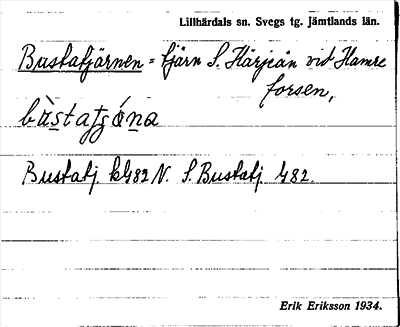 Lillhärdals sn. Svegs tg. Jämtlands län.
Bustatjärnen = tjärn S. Härjeån vid Hamre
forsen,
bùstatjǻna
Bustatj. kG82 N. S. Bustatj. G82.
Erik Eriksson 1934.